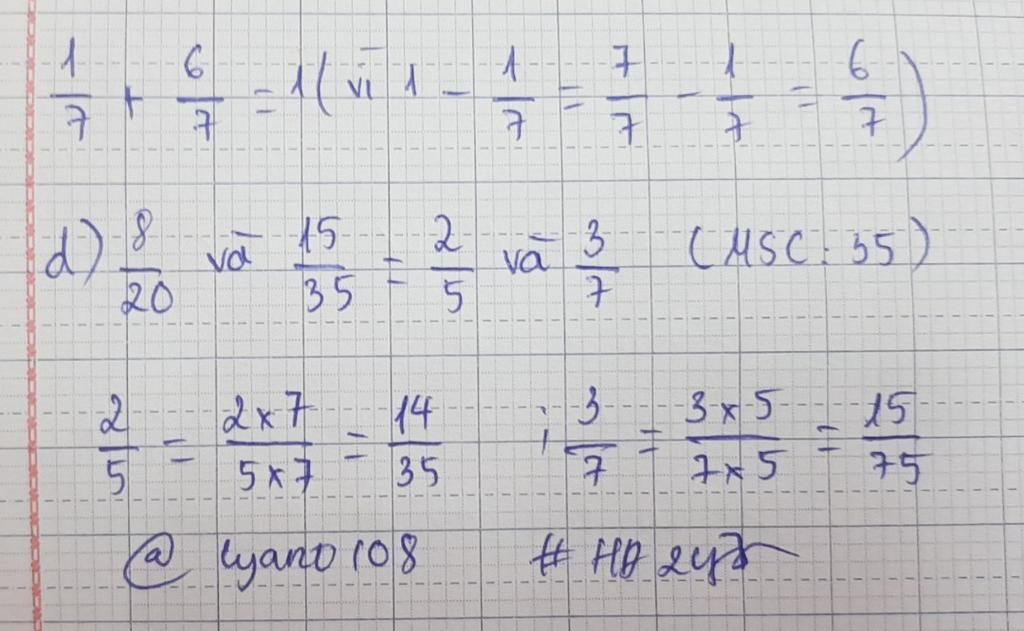 1/7 + 6/7 = 1 ( vì 1 - 1/7 = 7/7 - 1/7 = 6/7 )
d) 8/20 và 15/35 = 2/5 và 3/7 (MSC : 35)
2/5 = 2 x 7/5 x 7 = 14/35 ; 3/7 = 3 x 5/7 x 5 = 15/75
@ lyano108